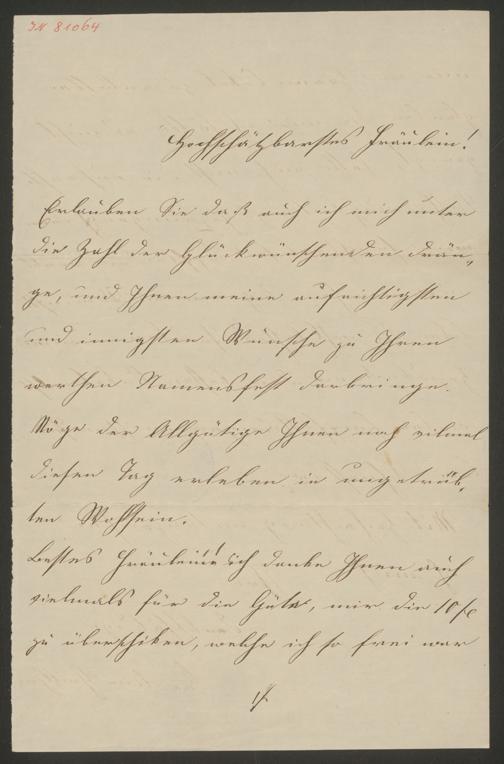 IN 81064
Hochschätzbarstes Fräulein!
Erlauben Sie daß auch ich mich unter
die Zahl der Glückwünschenden drän„
ge, und Ihnen meine aufrichtigsten
und innigsten Wünsche zu Ihren
werthen Namensfest darbringe.
Möge der Allgütige Ihnen noch vilmal
diesen Tag erleben in ungetrüb„
ten Wohlsein.
Bestes Fräulein! ich danke Ihnen auch
vielmals für die Güte, mir die 10 fl
zu überschiken, welche ich so frei war